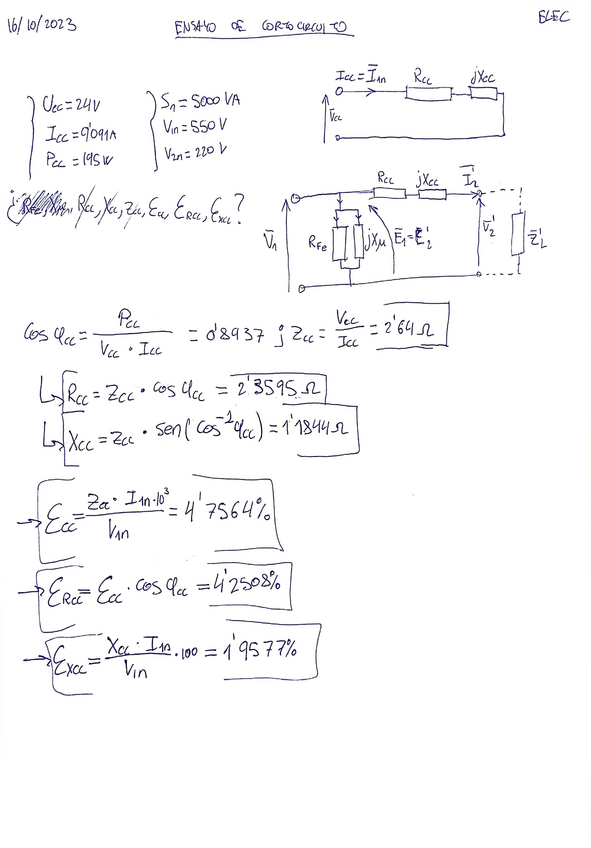 16/10/2023 ENSAYO DE CORTOCIRCUITO ELEC
Ucc = 24V
Icc = 9'091A
Pcc = 195W
Sn = 5000 VA
V1n = 550 V
V2n = 220 V
Icc = I̅1n Rcc jXcc
Vcc
Rcc, Xcc, Zcc, Ecc, ERcc, EXcc?
Rcc jXcc I̅2'
V̅1 RFe jXμ E̅1 = E̅2' V̅2' Z̅L'
cos φcc = Pcc / (Vcc · Icc) = 0'8937 ; Zcc = Vcc / Icc = 2'64 Ω
Rcc = Zcc · cos φcc = 2'3595 Ω
Xcc = Zcc · sen(cos⁻¹ φcc) = 1'1844 Ω
→ Ecc = (Zcc · I1n · 10³) / V1n = 4'7564%
→ ERcc = Ecc · cos φcc = 4'2508%
→ EXcc = (Xcc · I1n) / V1n · 100 = 1'9577%